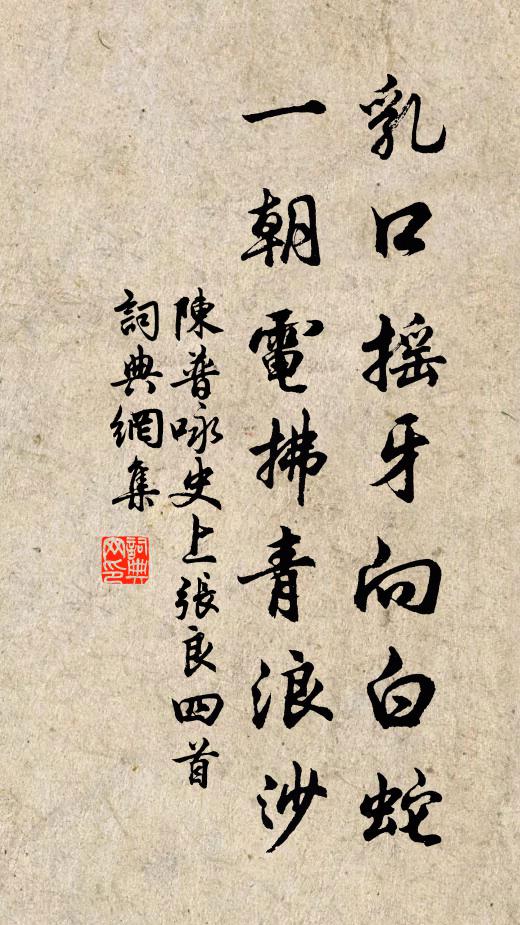 乳口摇牙向白蛇
一朝電拂青浪沙
陳普咏史上張良四首
詞典網集
詞典网印